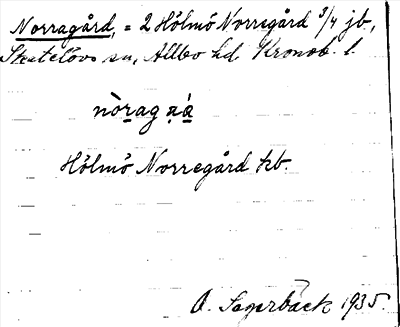 Norragård, = 2 Hölmö Norregård 3/4 jb.,
Skatelövs sn, Allbo hd Kronob. l.
nòragaṇá
Hölmö Norregård kb.
A. Sagerbäck 1935.